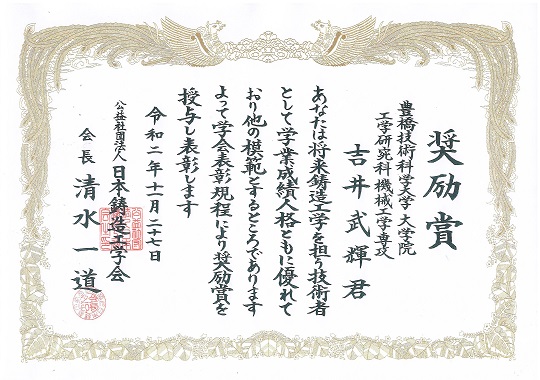 奨励賞
豊橋技術科学大学 大学院
工学研究科 機械工学専攻
吉井武輝君
あなたは将来鋳造工学を担う技術者
として学業成績人格ともに優れて
おり他の模範とするところであります
よって学会表彰規程により奨励賞を
授与し表彰します
令和二年十一月二十七日
公益社団法人 日本鋳造工学会
会長 清水一道